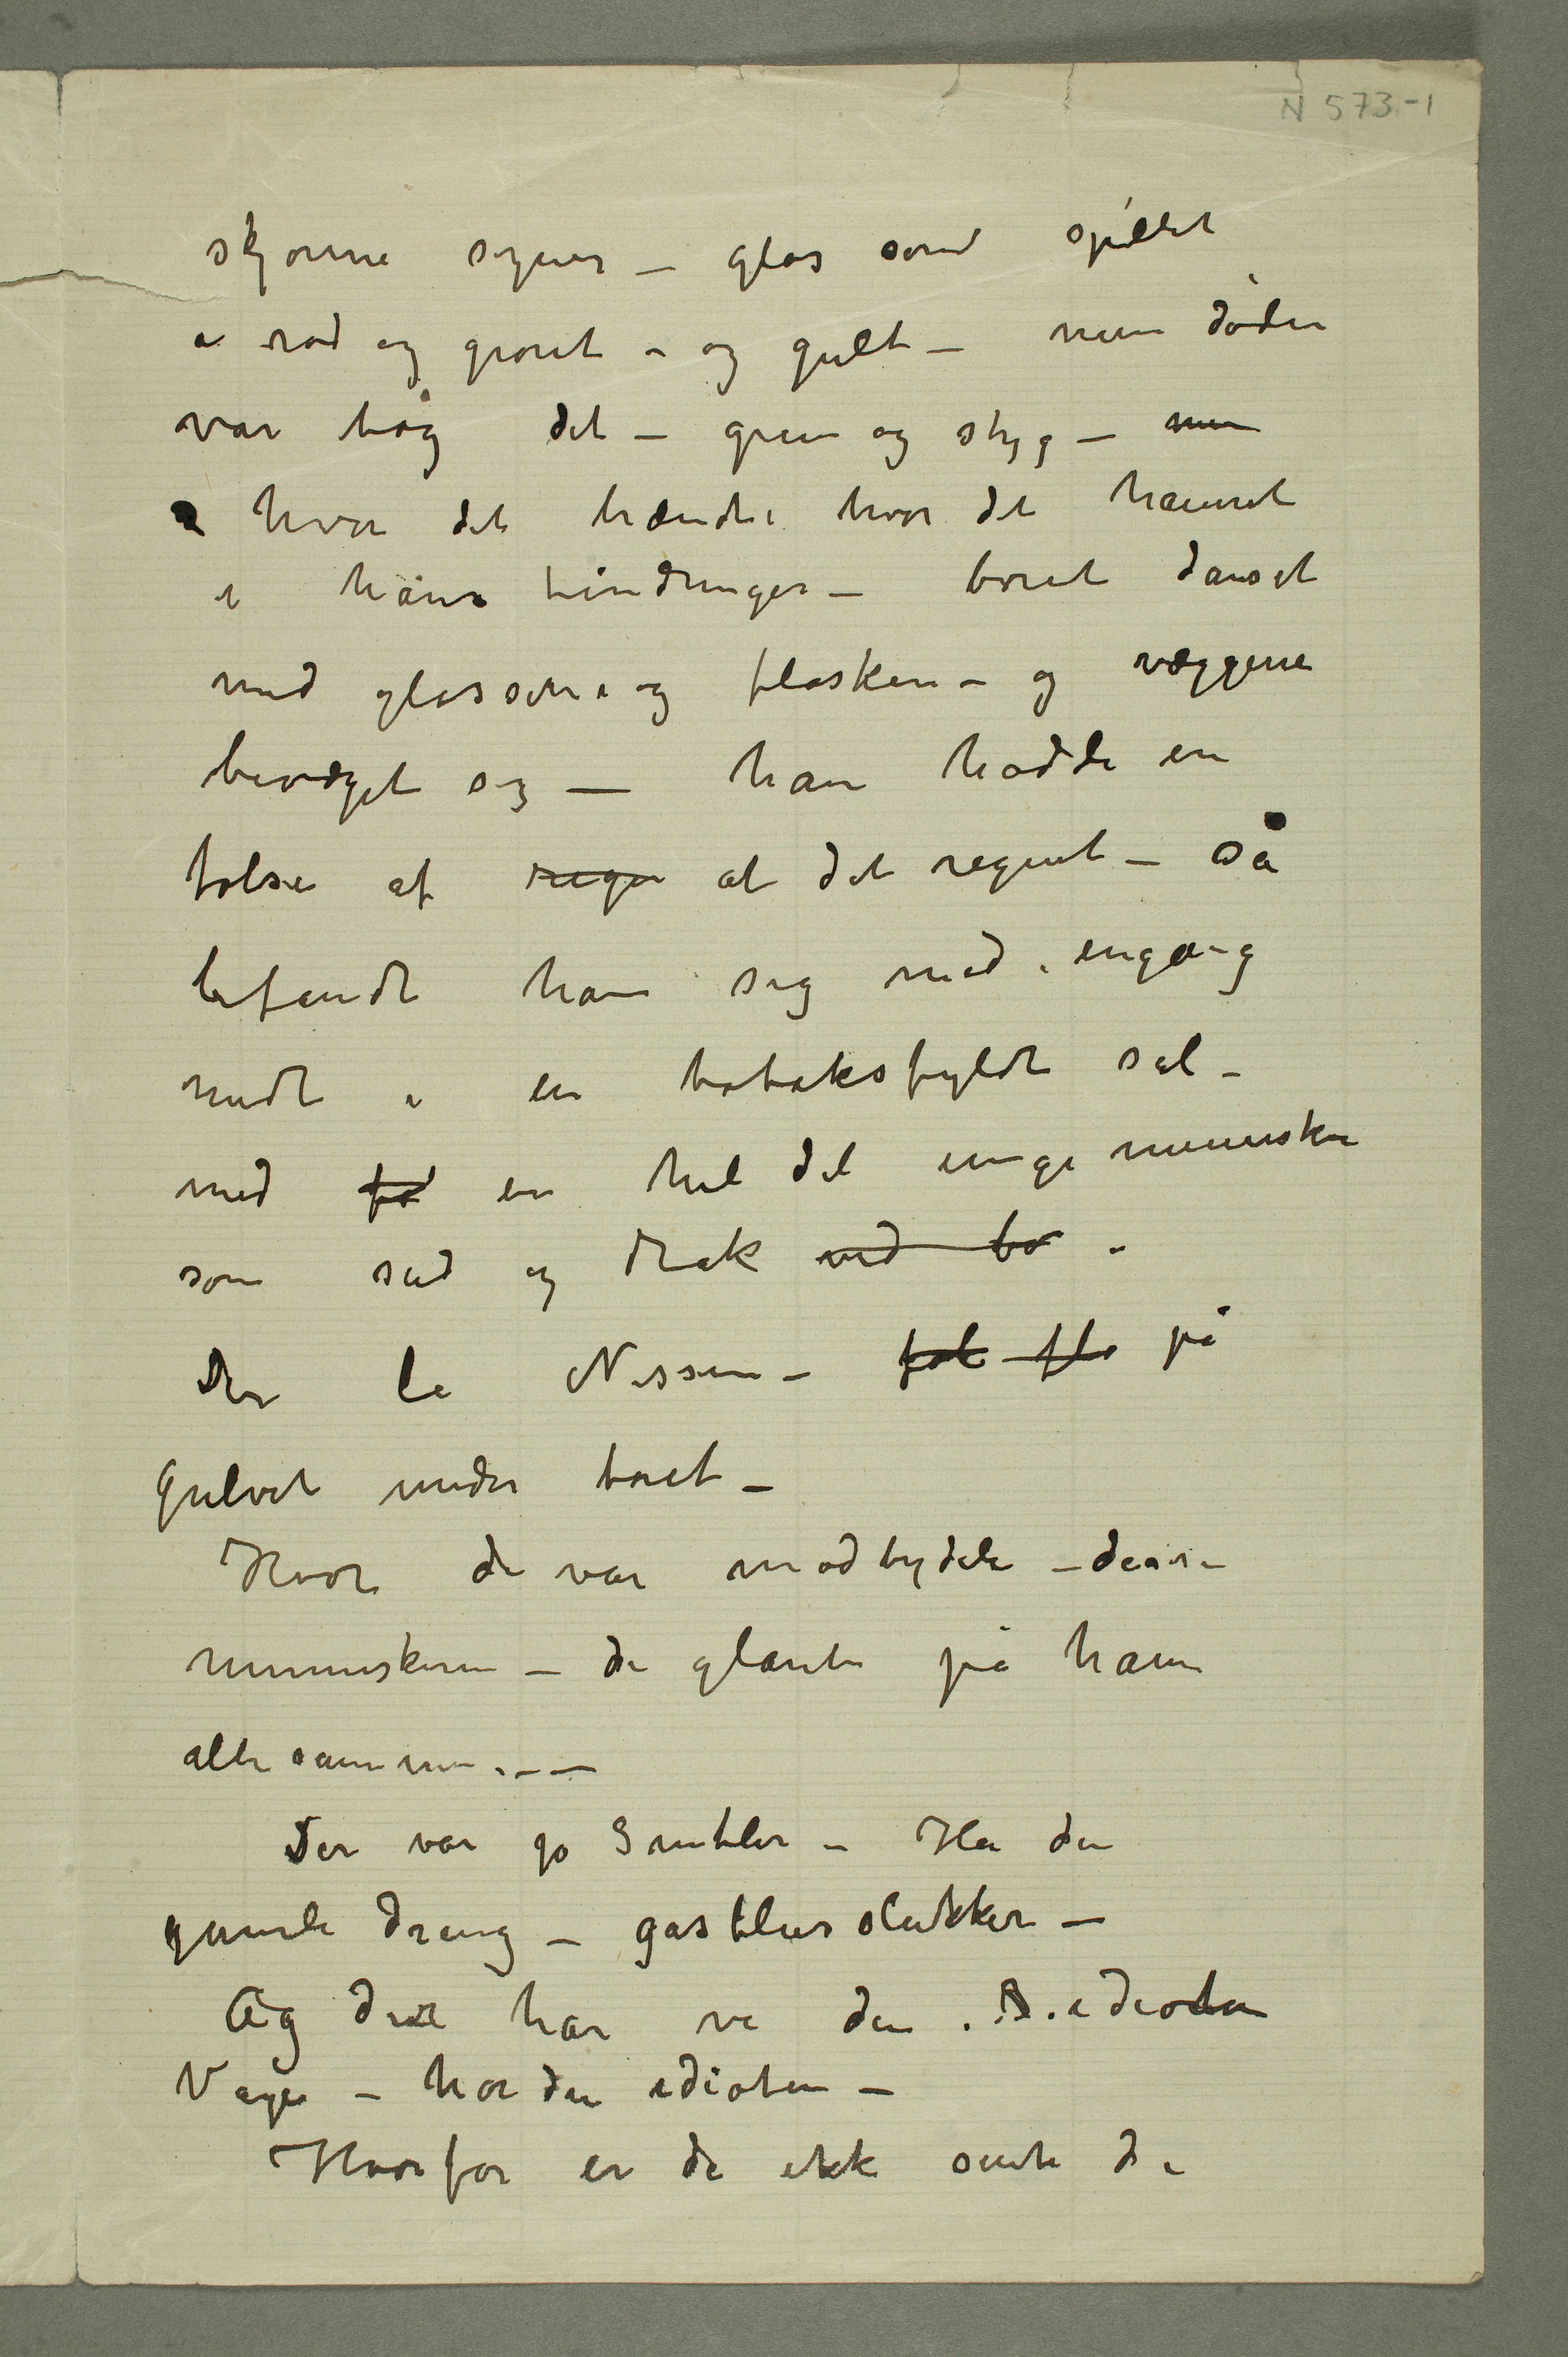 N 573-1
skjønne syner – glas som spillet
i rød og grønt – og gult – men døden
var bag det – grim og styg – men
hvor det brændte hvor det hamret
i hans tindinger – boret danset
med glassene og flasken – og væggene
bevæget sig – han hadde en
følse af regn at det regnet – så
befandt han sig med engang
midt i en tobaksfyldt sal –
med fo en hel del unge mennesker
som sad og drak ved bo –
Der lå Nissen – på
gulvet under boret –
Hvor de var modbydele – disse
menneskene – de glante på ham
allesammen – – –
Der var jo – Ha den
gamle dreng – gasblusslukker –
Og der har vi den idioten
– har den idioten –
Hvorfor er de ikk sinte de